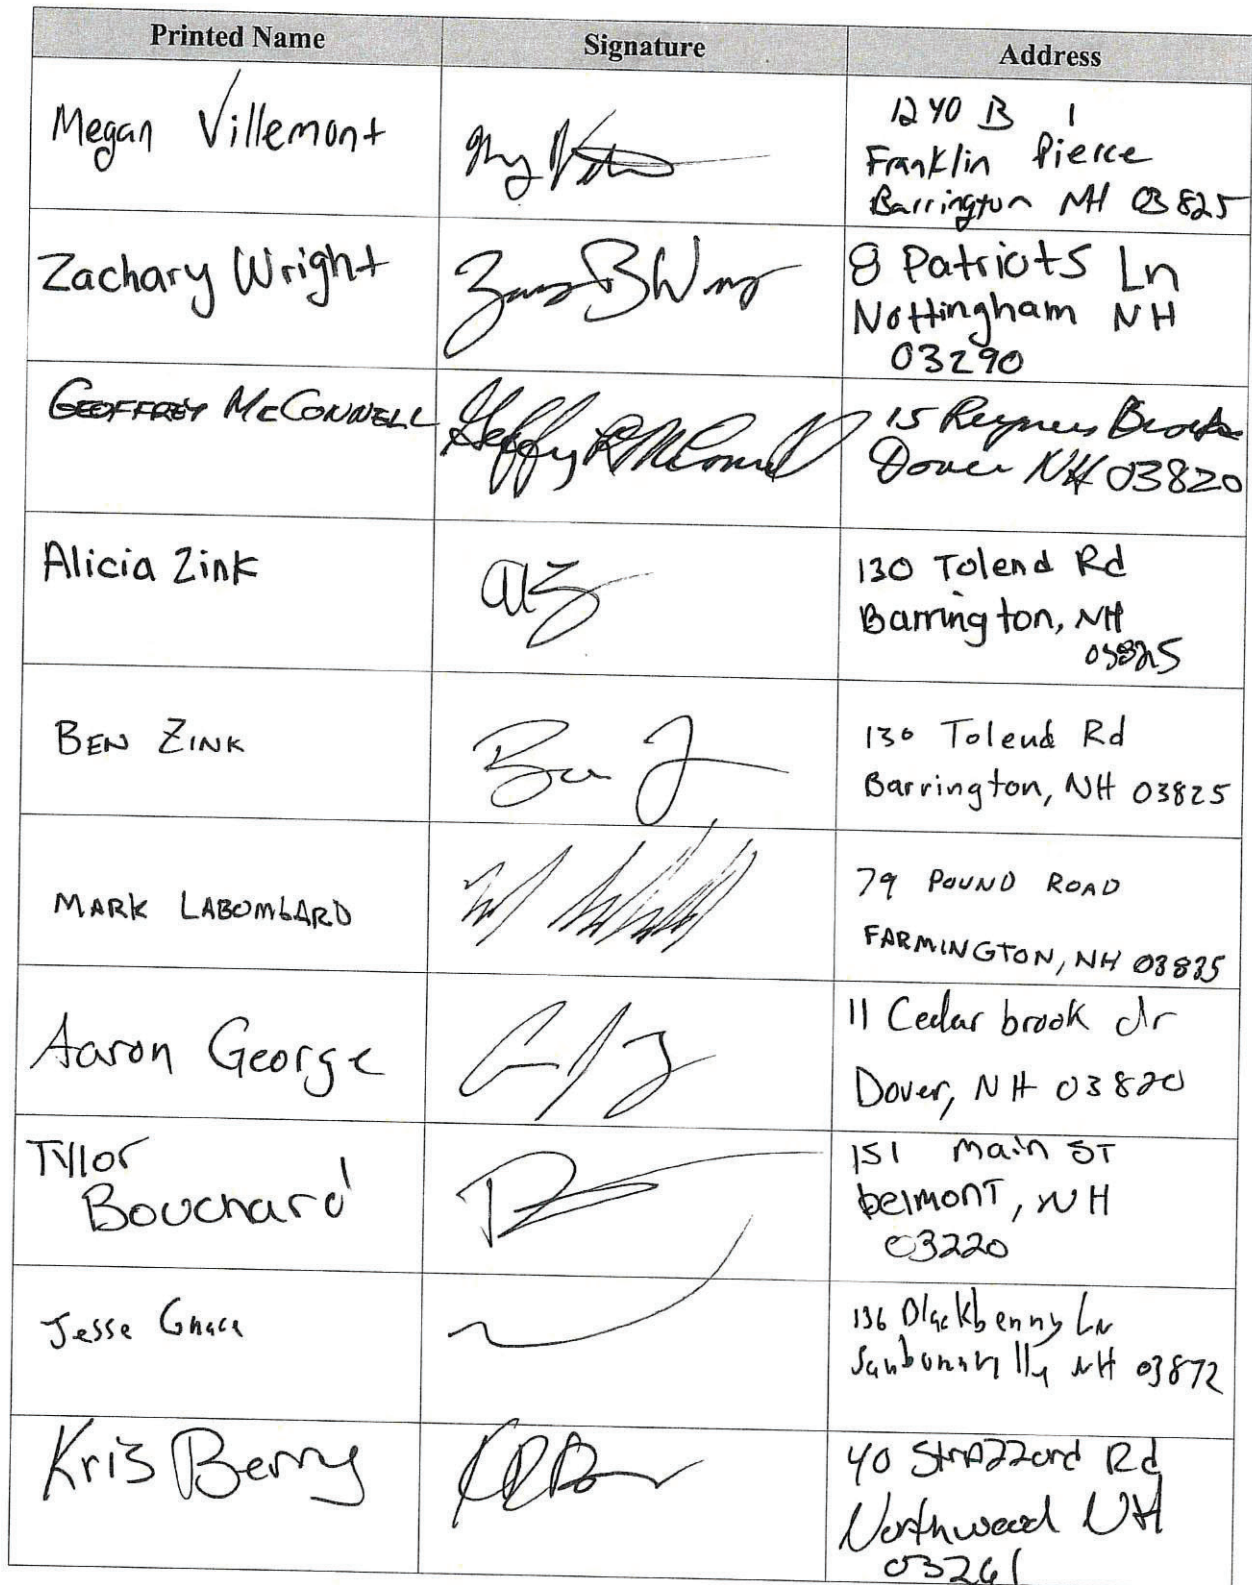 Printed Name Signature Address
Megan Villemont
1240 B 1
Franklin Pierce
Barrington NH 03825
Zachary Wright
8 Patriots Ln
Nottingham NH
03290
GEOFFREY MCCONNELL
15 Reyners Brook
Dover NH 03820
Alicia Zink
130 Tolend Rd
Barrington, NH
03825
BEN ZINK
130 Tolend Rd
Barrington, NH 03825
MARK LABOMBARD
79 POUND ROAD
FARMINGTON, NH 03835
Aaron George
11 Cedar brook dr
Dover, NH 03820
Tyllor
Bouchard
151 Main ST
belmont, NH
03220
Jesse Grace
136 Blackberry Ln
Sanbornville NH 03872
Kris Berry
40 Strafford Rd
Northwood NH
03261